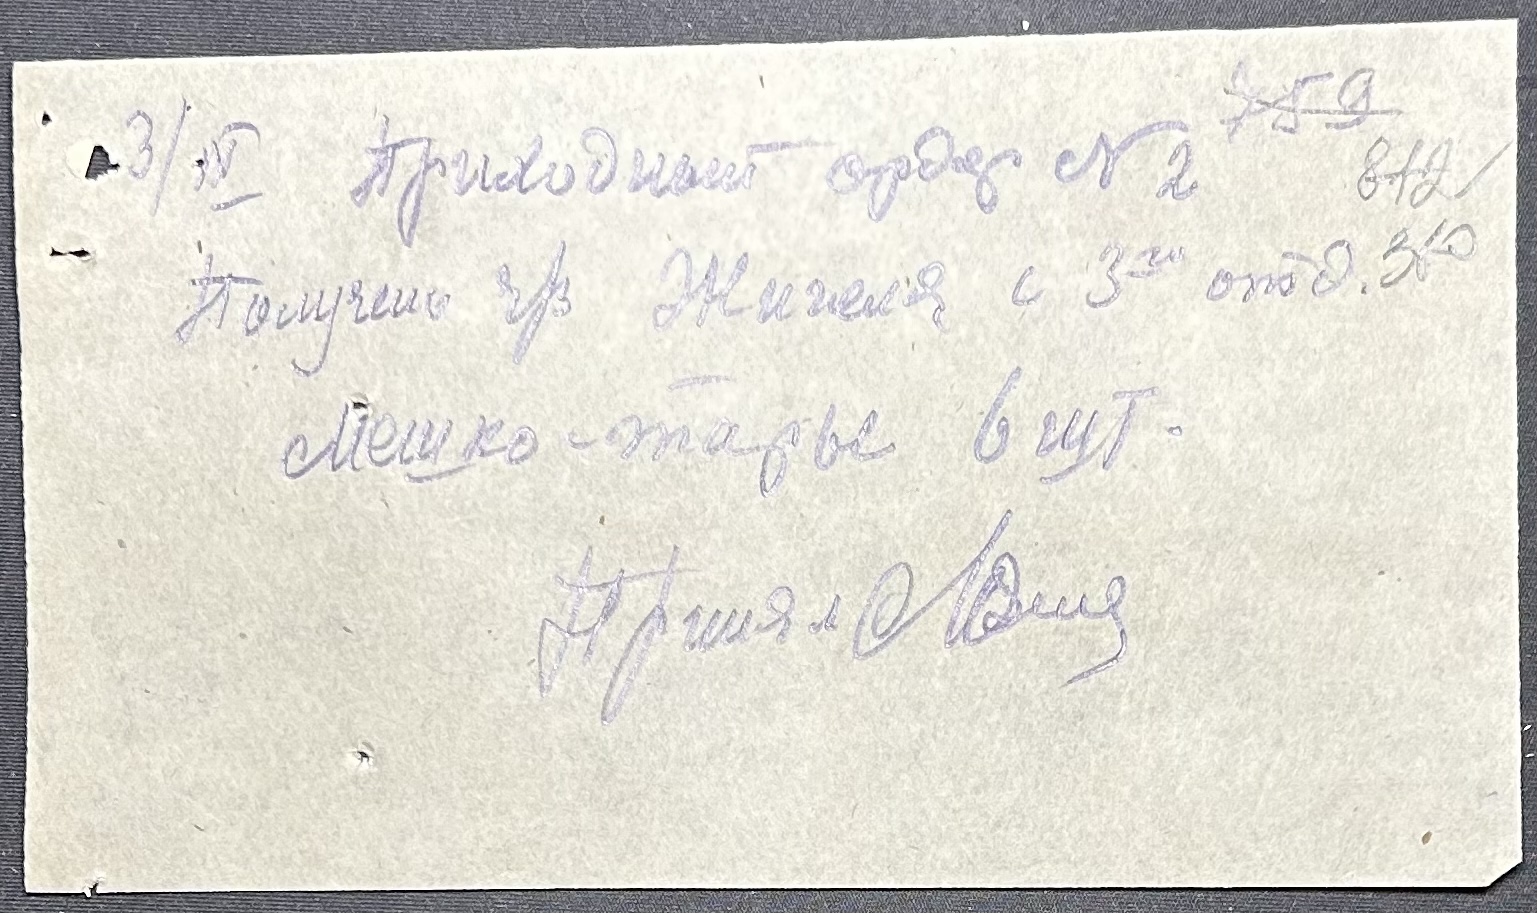 3/IV Приходный ордер N 2
812
Получено чрз Жигеля с 3го отд. 350
Мешко-тары 6 шт.
Принял